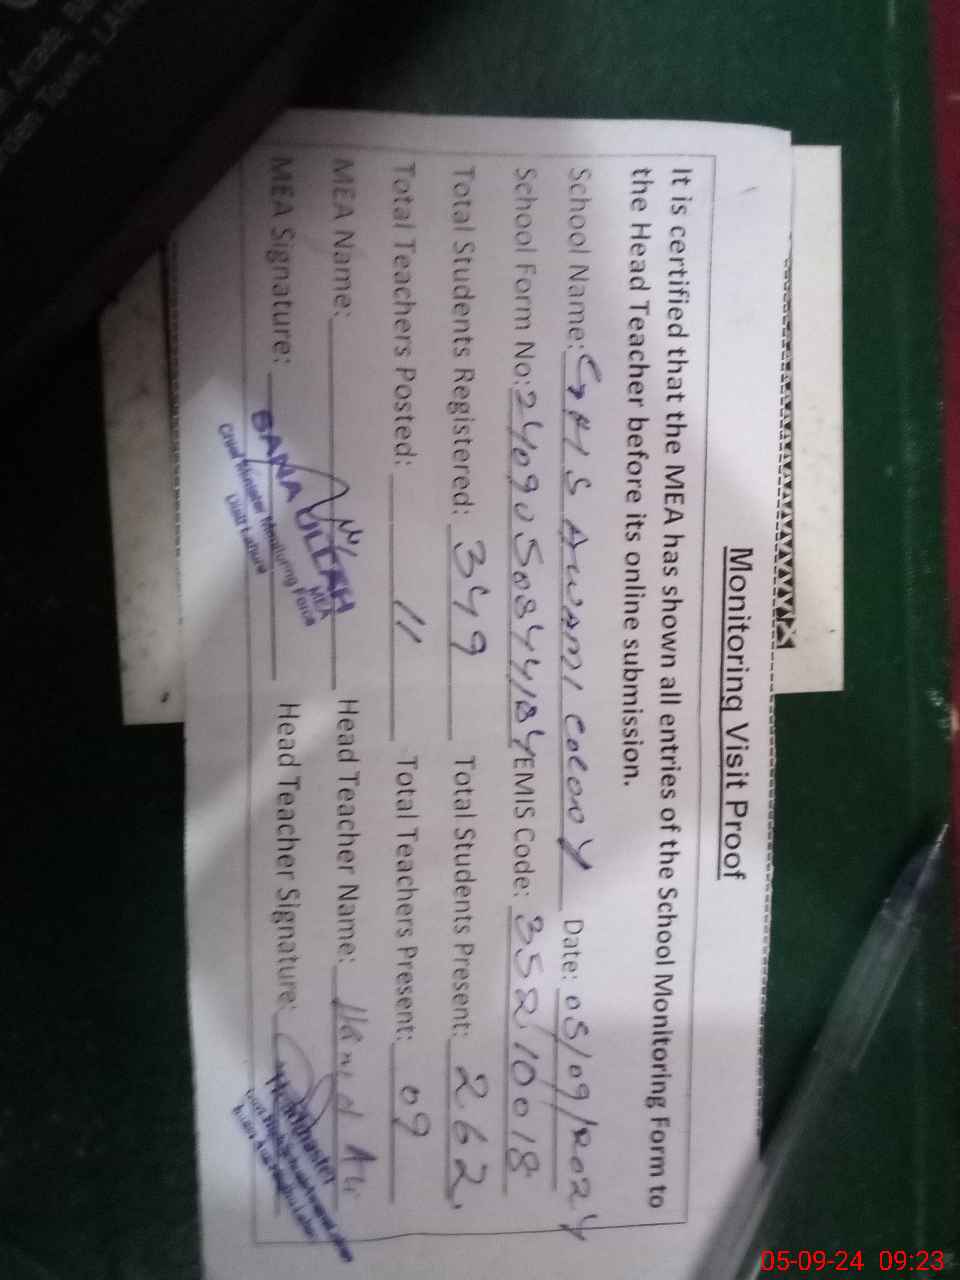 Monitoring Visit Proof
It is certified that the MEA has shown all entries of the School Monitoring Form to
the Head Teacher before its online submission.
School Name: GHS AWAMI COLONY Date: 05/09/2024
School Form No: EMIS Code: 35210018
Total Students Registered: 349 Total Students Present: 262
Total Teachers Posted: 11 Total Teachers Present: 09
MEA Name: Head Teacher Name: Hamid Ali
MEA Signature: Head Teacher Signature:
SANA ULLAH
MEA
Chief Minister Monitoring Force
Distt Lahore
Headmaster
05-09-24 09:23